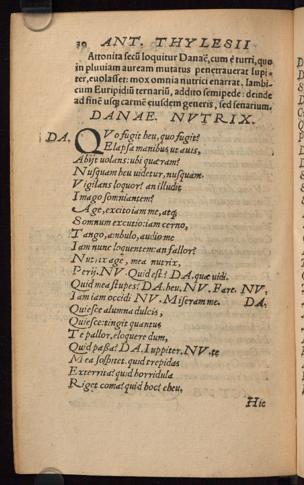 30 ANT. THYLESII
Attonita secũ loquitur Danaẽ, cum è turri, quo
in pluuiam auream mutatus penetrauerat Iupi-
ter, euolasset: mox omnia nutrici enarrat. Iambi-
cum Euripidium ternariũ, addito semipede: deinde
ad finẽ usq; carmẽ eiusdem generis, sed senarium.
DANAE. NVTRIX.
DA. QVo fugit heu, quo fugit?
Elapsa manibus ut auis,
Abijt uolans: ubi quæram?
Nusquam heu uidetur, nusquam.
Vigilans loquor? an illudit
Imago somniantem?
Age, excito iam me, atq;
Somnum excutio: iam cerno,
Tango, ambulo, audio me
Iam nunc loquentem: an fallor?
Nutrix age, mea nutrix,
Perij. NV. Quid est? DA. quæ uidi.
Quid mea stupes? DA. heu. NV. Fare. NV.
Iam iam occidi NV. Miseram me. DA.
Quiesce alumna dulcis,
Quiesce: tingit quantus
Te pallor, eloquere dum,
Quid passa? DA. Iuppiter. NV. te
Mea sospitet. quid trepidas
Exterrita? quid horridula
Riget coma? quid hoc? eheu,
Hic